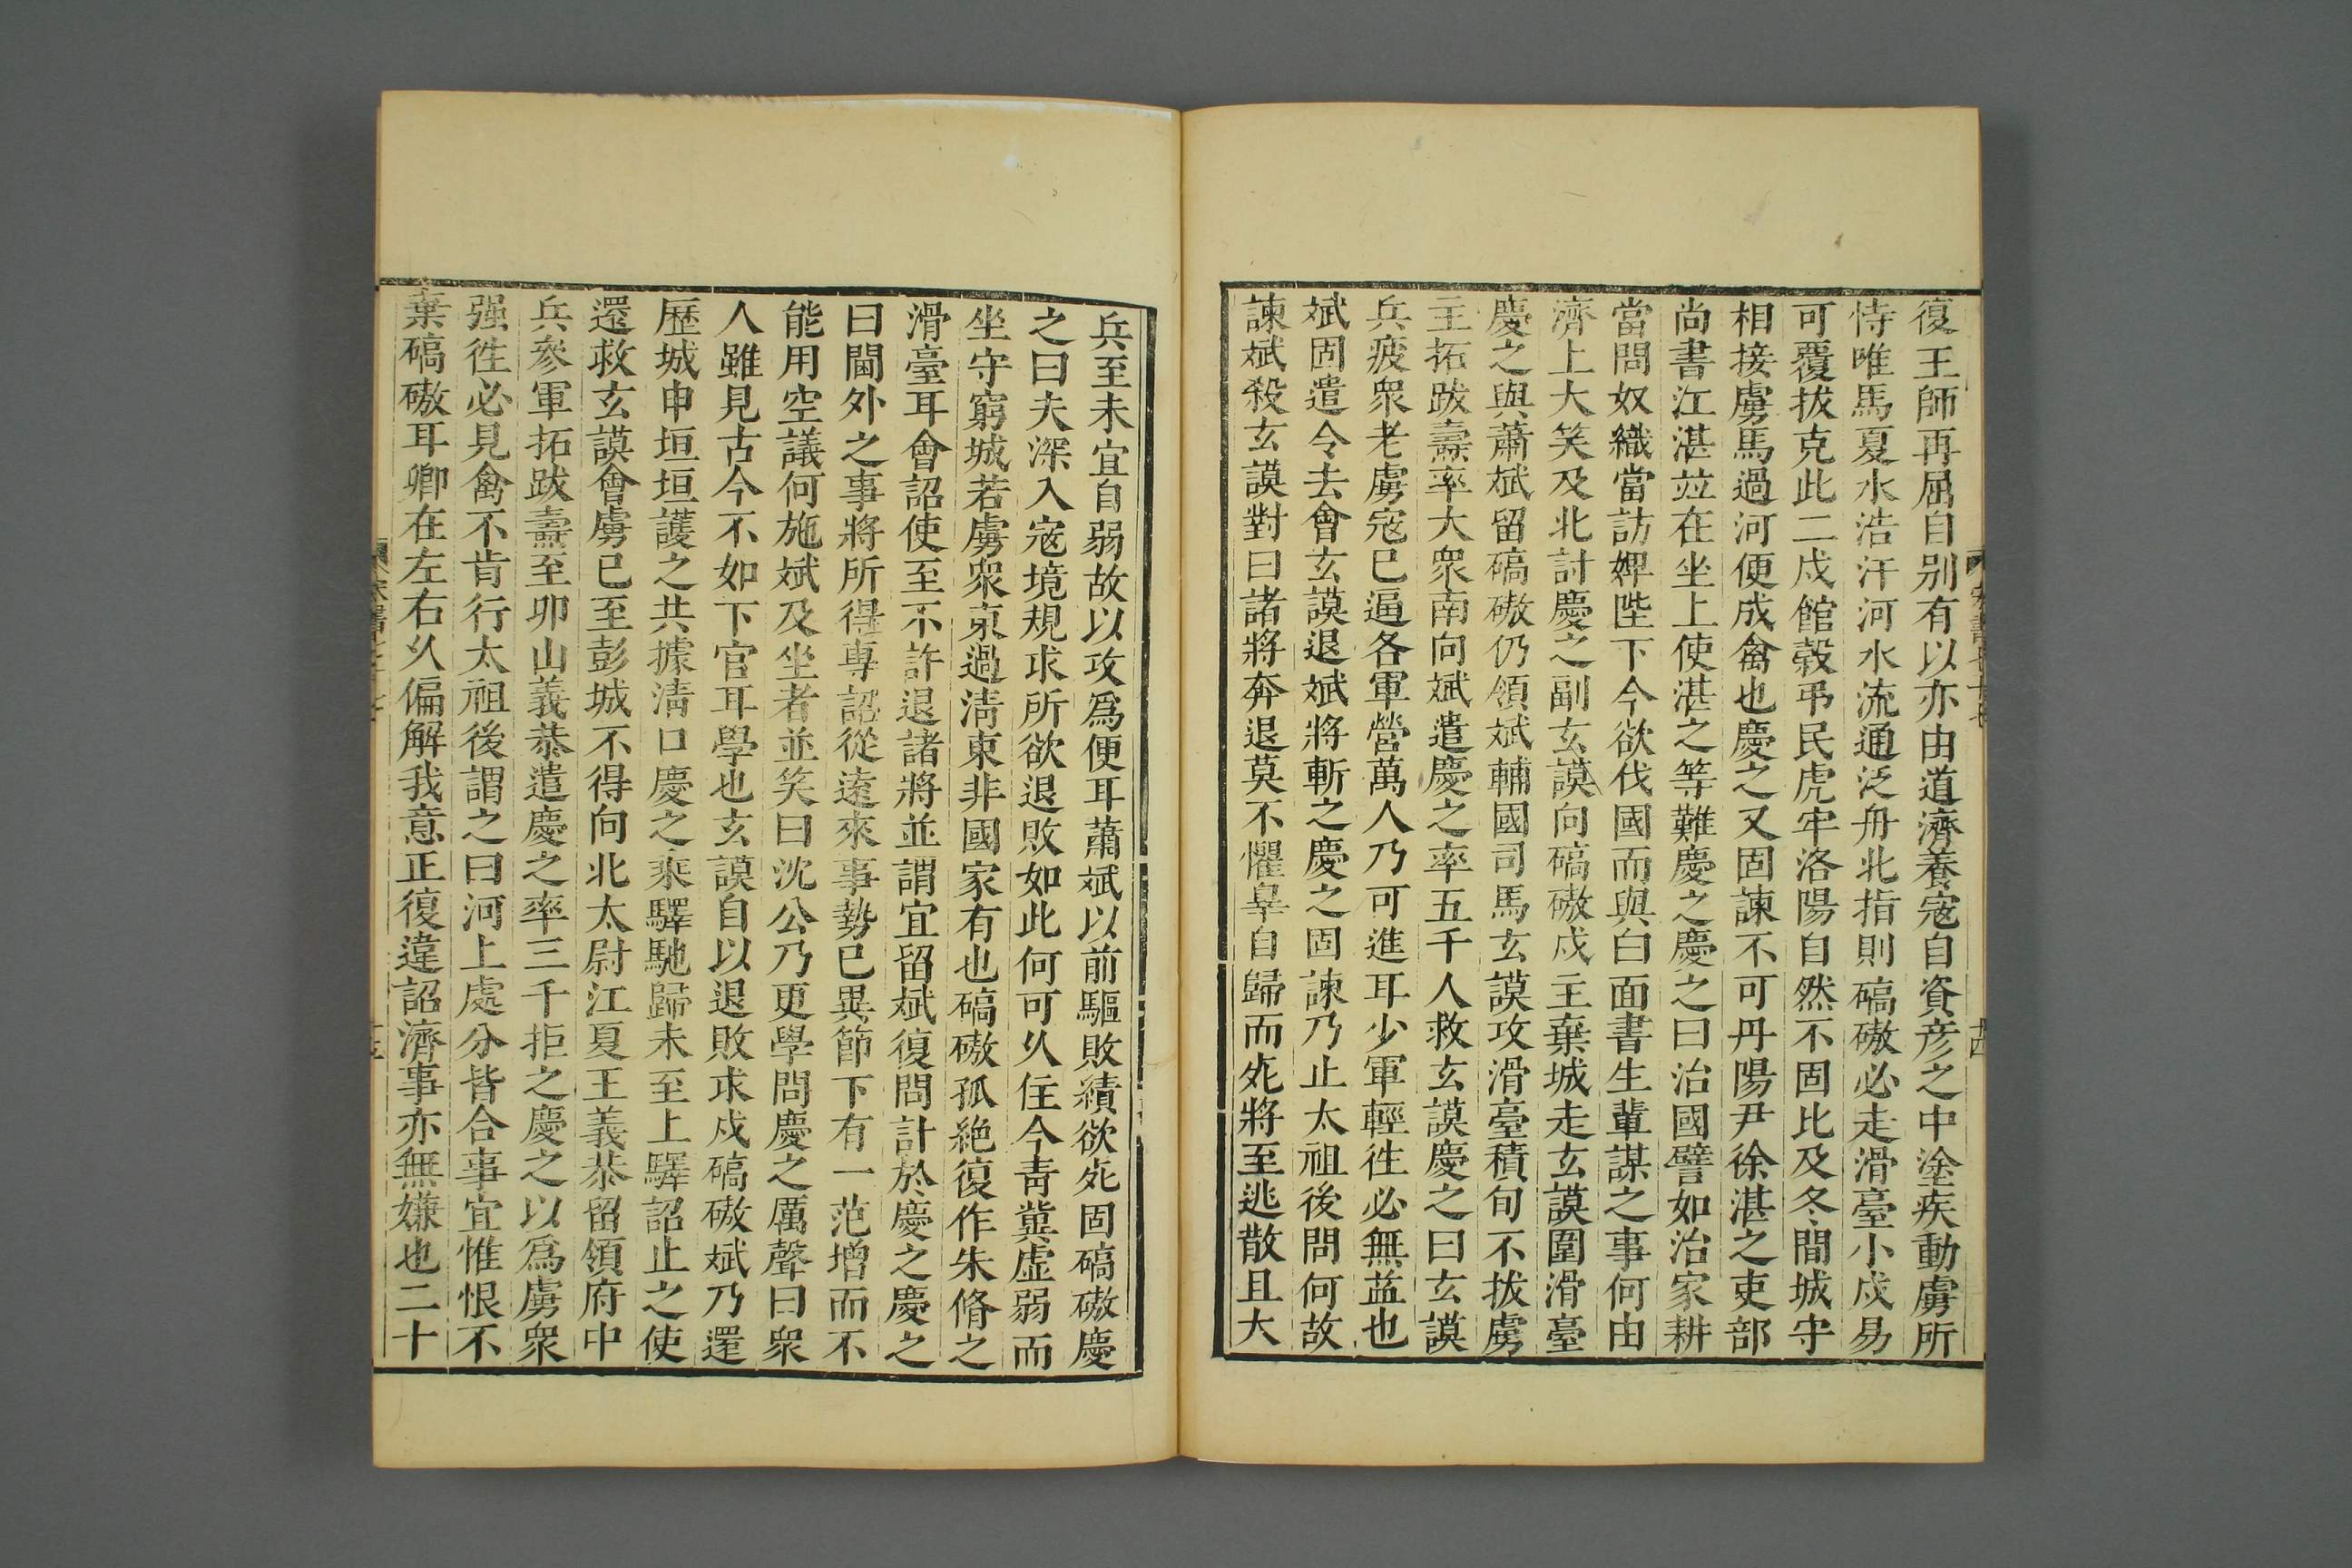 復王師再屈自别有以亦由道濟養寇自資彦之中塗疾動虜所
恃唯馬夏水浩汗河水流通泛舟北指則碻磝必走滑臺小戍易
可覆拔克此二戍館穀弔民虎牢洛陽自然不固比及冬間城守
相接虜馬過河便成禽也慶之又固諫不可丹陽尹徐湛之吏部
尚書江湛竝在坐上使湛之等難慶之慶之曰治國譬如治家耕
當問奴織當訪婢陛下今欲伐國而與白面書生輩謀之事何由
濟上大笑及北討慶之副玄謨向碻磝戍主棄城走玄謨圍滑臺
慶之與蕭斌留碻磝仍領斌輔國司馬玄謨攻滑臺積旬不拔虜
主拓跋燾率大衆南向斌遣慶之率五千人救玄謨慶之曰玄謨
兵疲衆老虜寇已逼各軍營萬人乃可進耳少軍輕徃必無益也
斌固遣令去會玄謨退斌將斬之慶之固諫乃止太祖後問何故
諫斌殺玄謨對曰諸將奔退莫不懼辠自歸而死將至逃散且大
兵至未宜自弱故以攻爲便耳蕭斌以前驅敗績欲死固碻磝慶
之曰夫深入寇境規求所欲退敗如此何可乆住今青冀虚弱而
坐守窮城若虜衆東過淸東非國家有也碻磝孤絶復作朱脩之
滑臺耳會詔使至不許退諸將並謂宜留斌復問計於慶之慶之
曰閫外之事將所得專詔從遠來事勢已異節下有一范增而不
能用空議何施斌及坐者並笑曰沈公乃更學問慶之厲聲曰衆
人雖見古今不如下官耳學也玄謨自以退敗求戍碻磝斌乃還
歷城申坦垣護之共據淸口慶之乘驛馳歸未至上驛詔止之使
還救玄謨會虜已至彭城不得向北太尉江夏王義恭留領府中
兵參軍拓跋燾至卯山義恭遣慶之率三千拒之慶之以爲虜衆
强徃必見禽不肯行太祖後謂之曰河上處分皆合事宜惟恨不
棄碻磝耳卿在左右乆偏解我意正復違詔濟事亦無嫌也二十